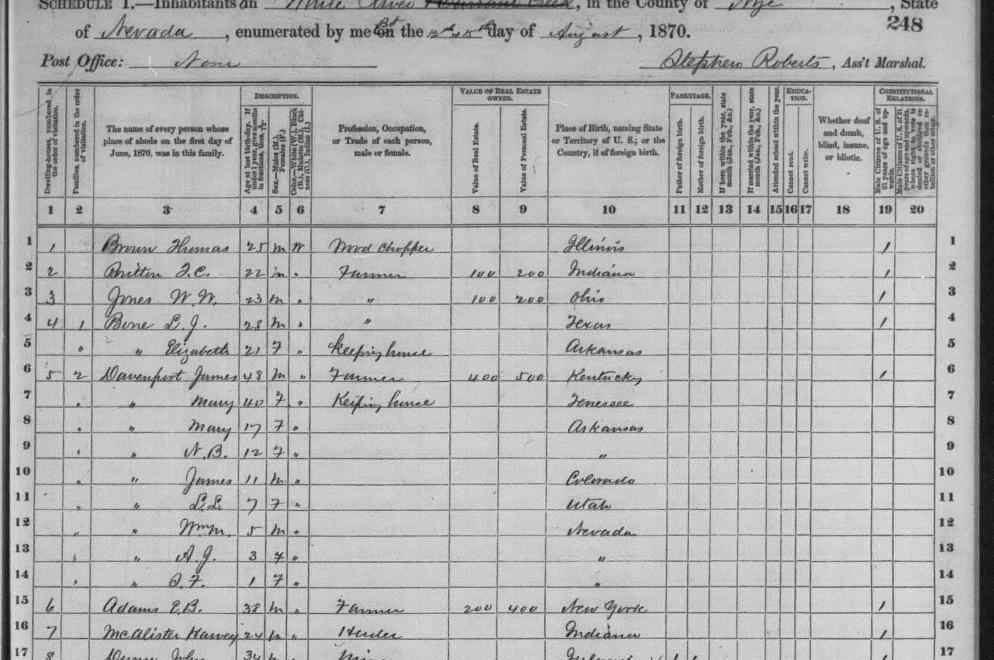 SCHEDULE 1.—Inhabitants in White River Pleasant Creek, in the County of Nye, State
of Nevada, enumerated by me on the day of August, 1870. 248
Post Office: None Stephen Roberts, Ass't Marshal.
DESCRIPTION. VALUE OF REAL ESTATE OWNED. PARENTAGE. EDUCATION. CONSTITUTIONAL RELATIONS.
Dwelling-houses, numbered in the order of visitation. Families, numbered in the order of visitation. The name of every person whose place of abode on the first day of June, 1870, was in this family. Age at last birth-day. If under 1 year, give months in fractions, thus, Sex.—Males (M.), Females (F.) Color.—White (W.), Black (B.), Mulatto (M.), Chinese (C.), Indian (I.) Profession, Occupation, or Trade of each person, male or female. Value of Real Estate. Value of Personal Estate. Place of Birth, naming State or Territory of U. S.; or the Country, if of foreign birth. Father of foreign birth. Mother of foreign birth. If born within the year, state month (Jan., Feb., &c.) If married within the year, state month (Jan., Feb., &c.) Attended school within the year. Cannot read. Cannot write. Whether deaf and dumb, blind, insane, or idiotic. Male Citizens of U. S. of 21 years of age and upwards.
1 2 3 4 5 6 7 8 9 10 11 12 13 14 15 16 17 18 19 20
1 1 Brown Thomas 25 M W Wood Chopper Illinois 1 1
2 2 Britton J.C. 22 m " Farmer 100 200 Indiana 1 2
3 3 Jones W.W. 23 M " " 100 200 Ohio 1 3
4 4 1 Bone L.J. 28 M " " Texas 1 4
5 " " Elizabeth 21 F " Keeping house Arkansas 5
6 5 2 Davenport James 48 M " Farmer 400 500 Kentucky 1 6
7 " " Mary 40 F " Keiping house Tenessee 7
8 " " Mary 17 F " Arkansas 8
9 " " N.B. 12 F " " 9
10 " " James 11 M " Colorado 10
11 " " L.L. 7 F " Utah 11
12 " " Wm M. 5 M " Nevada 12
13 " " A.J. 3 F " " 13
14 " " F. 1 F " " 14
15 6 Adams E.B. 38 M " Farmer 200 400 New York 1 15
16 7 McAlister Harvey 24 M " Herder Indiana 1 16
17 8 John 34 M " 1 1 1 17